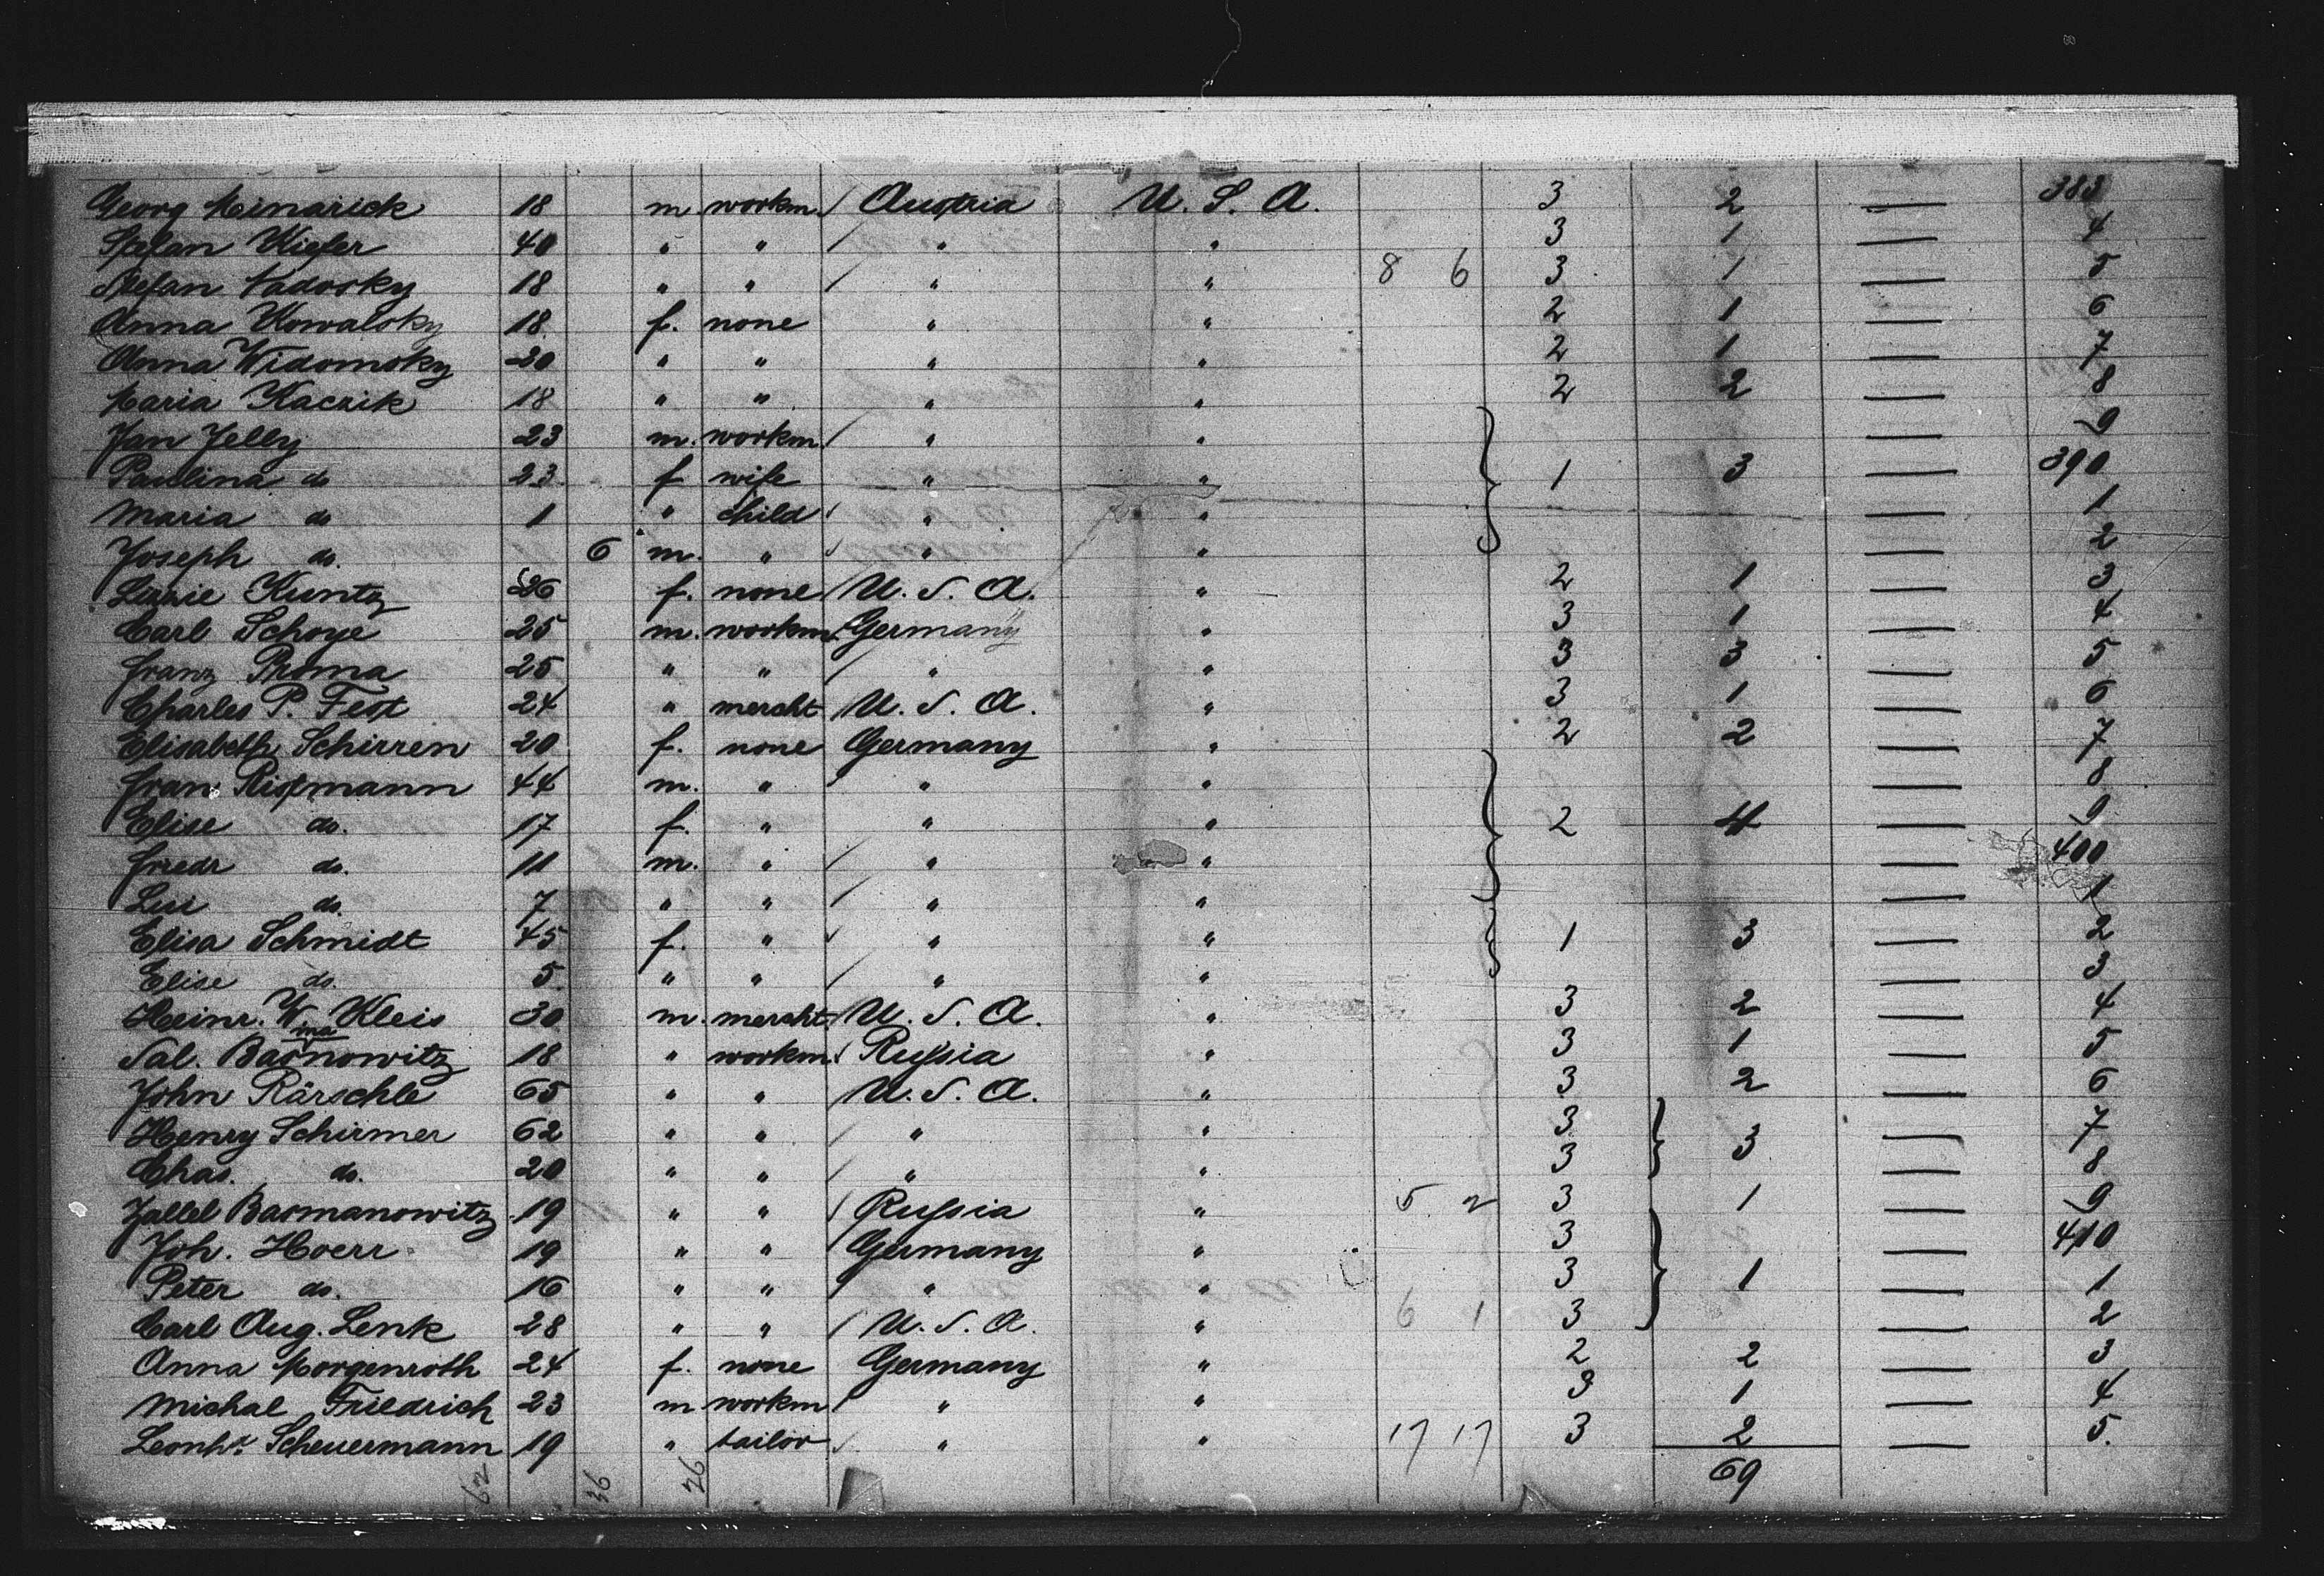 Georg Meinarick 18 m. workm. Austria U. S. A. 3 2 — 383
Stefan Kiefer 40 " " " " 3 1 — 4
Stefan Vadosky 18 " " " " 8 6 3 1 — 5
Anna Kowalsky 18 f. none " " 2 1 — 6
Anna Widomsky 20 " " " " 2 1 — 7
Maria Kaczik 18 " " " " 2 2 — 8
Jan Jelly 23 m. workm. " " — 9
Paulina do 23 f wife " " 1 3 — 390
Maria do 1 " child " " — 1
Joseph do. 6 m. " " " 2
Lizzie Kuntz 26 f. none U. S. A. " 2 1 — 3
Carl Schoye 25 m. workm. Germany " 3 1 — 4
Franz Proma 25 " " " " 3 3 — 5
Charles P. Fest 24 " mercht U. S. A. " 3 1 — 6
Elisabeth Schirren 20 f. none Germany " 2 2 — 7
Fran. Rismann 44 m. " " " — 8
Elise do. 17 f. " " " 2 4 — 9
Friedr do. 11 m. " " " — 400
do. 7 " " " " — 1
Elisa Schmidt 45 f. " " " 1 3 — 2
Elise do. 5. " " " " — 3
Heinr. Wm Kleis 30 m. mercht U. S. A. " 3 2 — 4
Sal. 18 " workm. Russia " 3 1 — 5
John Rärschle 65 " " U. S. A. " 3 2 — 6
Henry Schirmer 62 " " " " 3 3 — 7
Chas. do. 20 " " " " 3 — 8
Basmanowitz 19 " " Russia " 5 2 3 1 — 9
Joh. Hoerr 19 " " Germany " 3 — 410
Peter do. 16 " " " " 3 1 — 1
Carl Aug. Lenk 28 " " U. S. A. " 6 1 3 — 2
Anna Morgenroth 24 f. none Germany " 2 2 — 3
Michal Friedrich 23 m workm " " 3 1 — 4
Leonh. Scheuermann 19 " tailor " " 17 17 3 2 — 5.
62 36 26 69